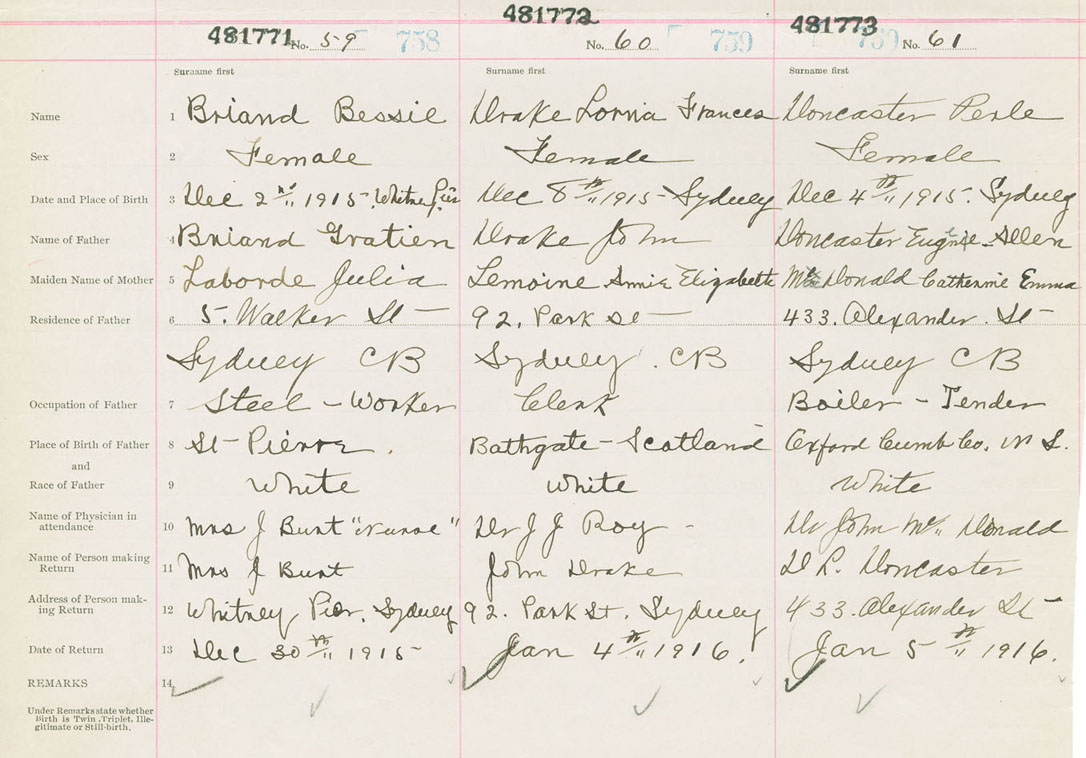 481771 No. 59 758
481772 No. 60 759
481773 No. 61
Surname first Surname first Surname first
Name 1 Briand Bessie Drake Lorna Frances Doncaster Perle
Sex 2 Female Female Female
Date and Place of Birth 3 Dec 2nd 1915 - Whitney Pier Dec 8th 1915 - Sydney Dec 4th 1915. Sydney
Name of Father 4 Briand Gratien Drake John Doncaster Eugene Allen
Maiden Name of Mother 5 Laborde Julia Lemoine Annie Elizabeth McDonald Catherine Emma
Residence of Father 6 5. Walker St - 92. Park St - 433. Alexander. St -
Sydney CB Sydney. CB Sydney CB
Occupation of Father 7 Steel - Worker Clerk Boiler - Tender
Place of Birth of Father 8 St - Pierre. Bathgate - Scotland Oxford Cumb Co. N S.
and
Race of Father 9 White White White
Name of Physician in
attendance 10 Mrs J Burt "Nurse" Dr J J Roy - Dr John Mc Donald
Name of Person making
Return 11 Mrs J Burt John Drake D R. Doncaster
Address of Person mak-
ing Return 12 Whitney Pier. Sydney 92. Park St. Sydney 433. Alexander St -
Date of Return 13 Dec 30th 1915 - Jan 4th 1916. Jan 5th 1916.
REMARKS 14
Under Remarks state whether
Birth is Twin, Triplet, Ille-
gitimate or Still-birth.